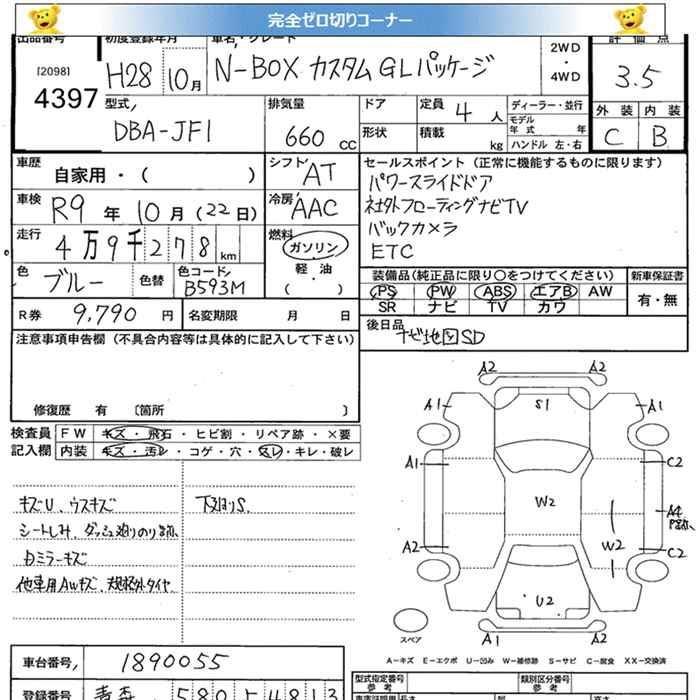 完全ゼロ切りコーナー
出品番号 初度登録年月 車名・グレード 2WD ・ 4WD 評価点
[2098] 4397 H28 10月 N-BOX カスタム GLパッケージ 3.5
型式 排気量 ドア 定員 4 人 ディーラー・並行 外装 内装
DBA-JF1 660 CC 形状 積載 kg モデル年式 年 C B
ハンドル 左・右
車歴 自家用・( ) シフト AT セールスポイント (正常に機能するものに限ります)
車検 R9 年 10 月 (22日) 冷房 AAC パワースライドドア
社外フローティングナビTV
走行 4万9千278 km 燃料 ガソリン バックカメラ
軽油 ETC
( )
色 ブルー 色替 色コード B593M 装備品(純正品に限り○をつけてください) 新車保証書
PS PW ABS エアB AW 有・無
SR ナビ TV カワ
R券 9,790 円 名変期限 月 日 後日品
ナビ地図SD
注意事項申告欄 (不具合内容等は具体的に記入して下さい)
修復歴 有 〔箇所 〕
検査員 FW キズ・飛石・ヒビ割・リペア跡・×要
記入欄 内装 キズ・汚レ・コゲ・穴・スレ・キレ・破レ
キズU、ウスキズ 下廻りS、
シートしみ、ダッシュ廻りのり跡、
カミラーキズ
他車用AWキズ、規格外タイヤ、
A2 A2
A1 S1 A1
A1 C2
W2 A4
P跡、
W2
A2 C2
U2
スペア A1 A2
A-キズ E-エクボ U-凹み W-補修跡 S-サビ C-腐食 XX-交換済
車台番号 1890055
型式指定番号 参考 類別区分番号 参考
登録番号 青森 580 ト 4813